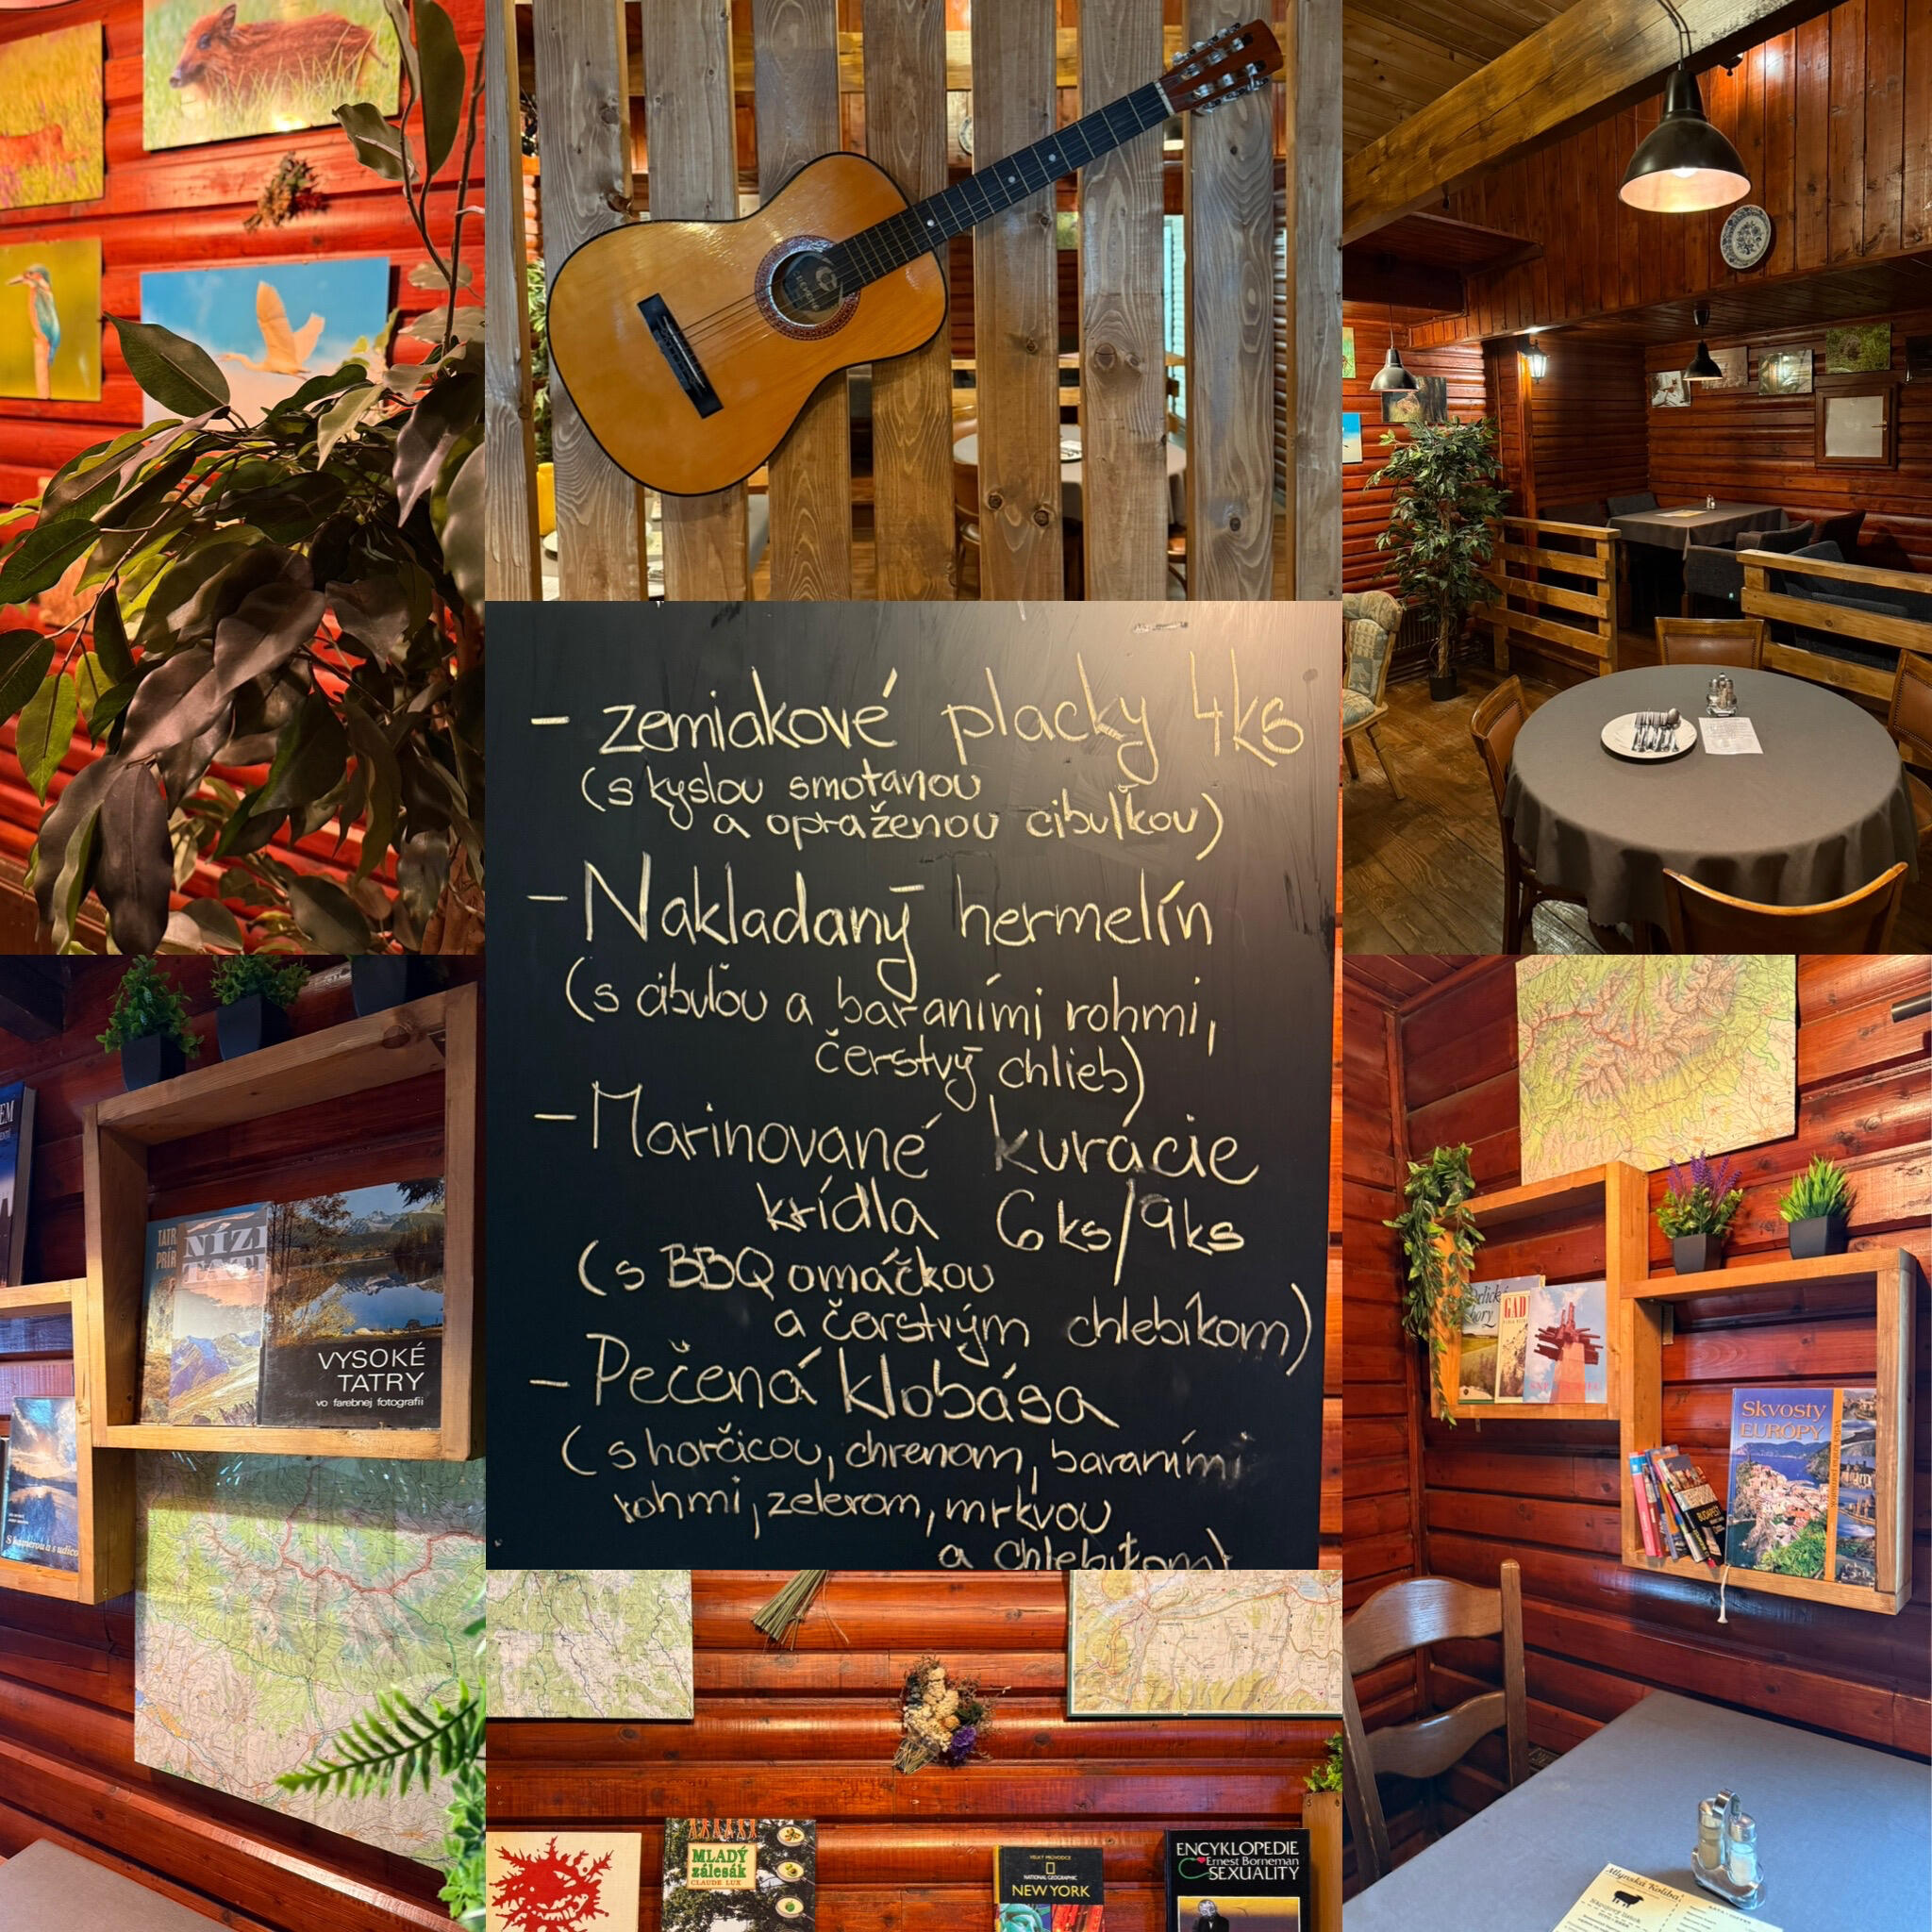 - zemiakové placky 4ks
(s kyslou smotanou
a opraženou cibuľkou)
- Nakladaný hermelín
(s cibuľou a baraními rohmi,
čerstvý chlieb)
- Marinované kurácie
krídla 6ks/9ks
(s BBQ omáčkou
a čerstvým chlebíkom)
- Pečená klobása
(s horčicou, chrenom, baraními
rohmi, zelerom, mrkvou
a chlebíkom)
VYSOKÉ
TATRY
vo farebnej fotografii
S kamerou a s udicou
Skvosty
EURÓPY
BUDAPEST
MLADÝ
zálesák
CLAUDE LUX
NATIONAL GEOGRAPHIC
NEW YORK
ENCYKLOPEDIE
Ernest Borneman
SEXUALITY
Mlynská Koliba